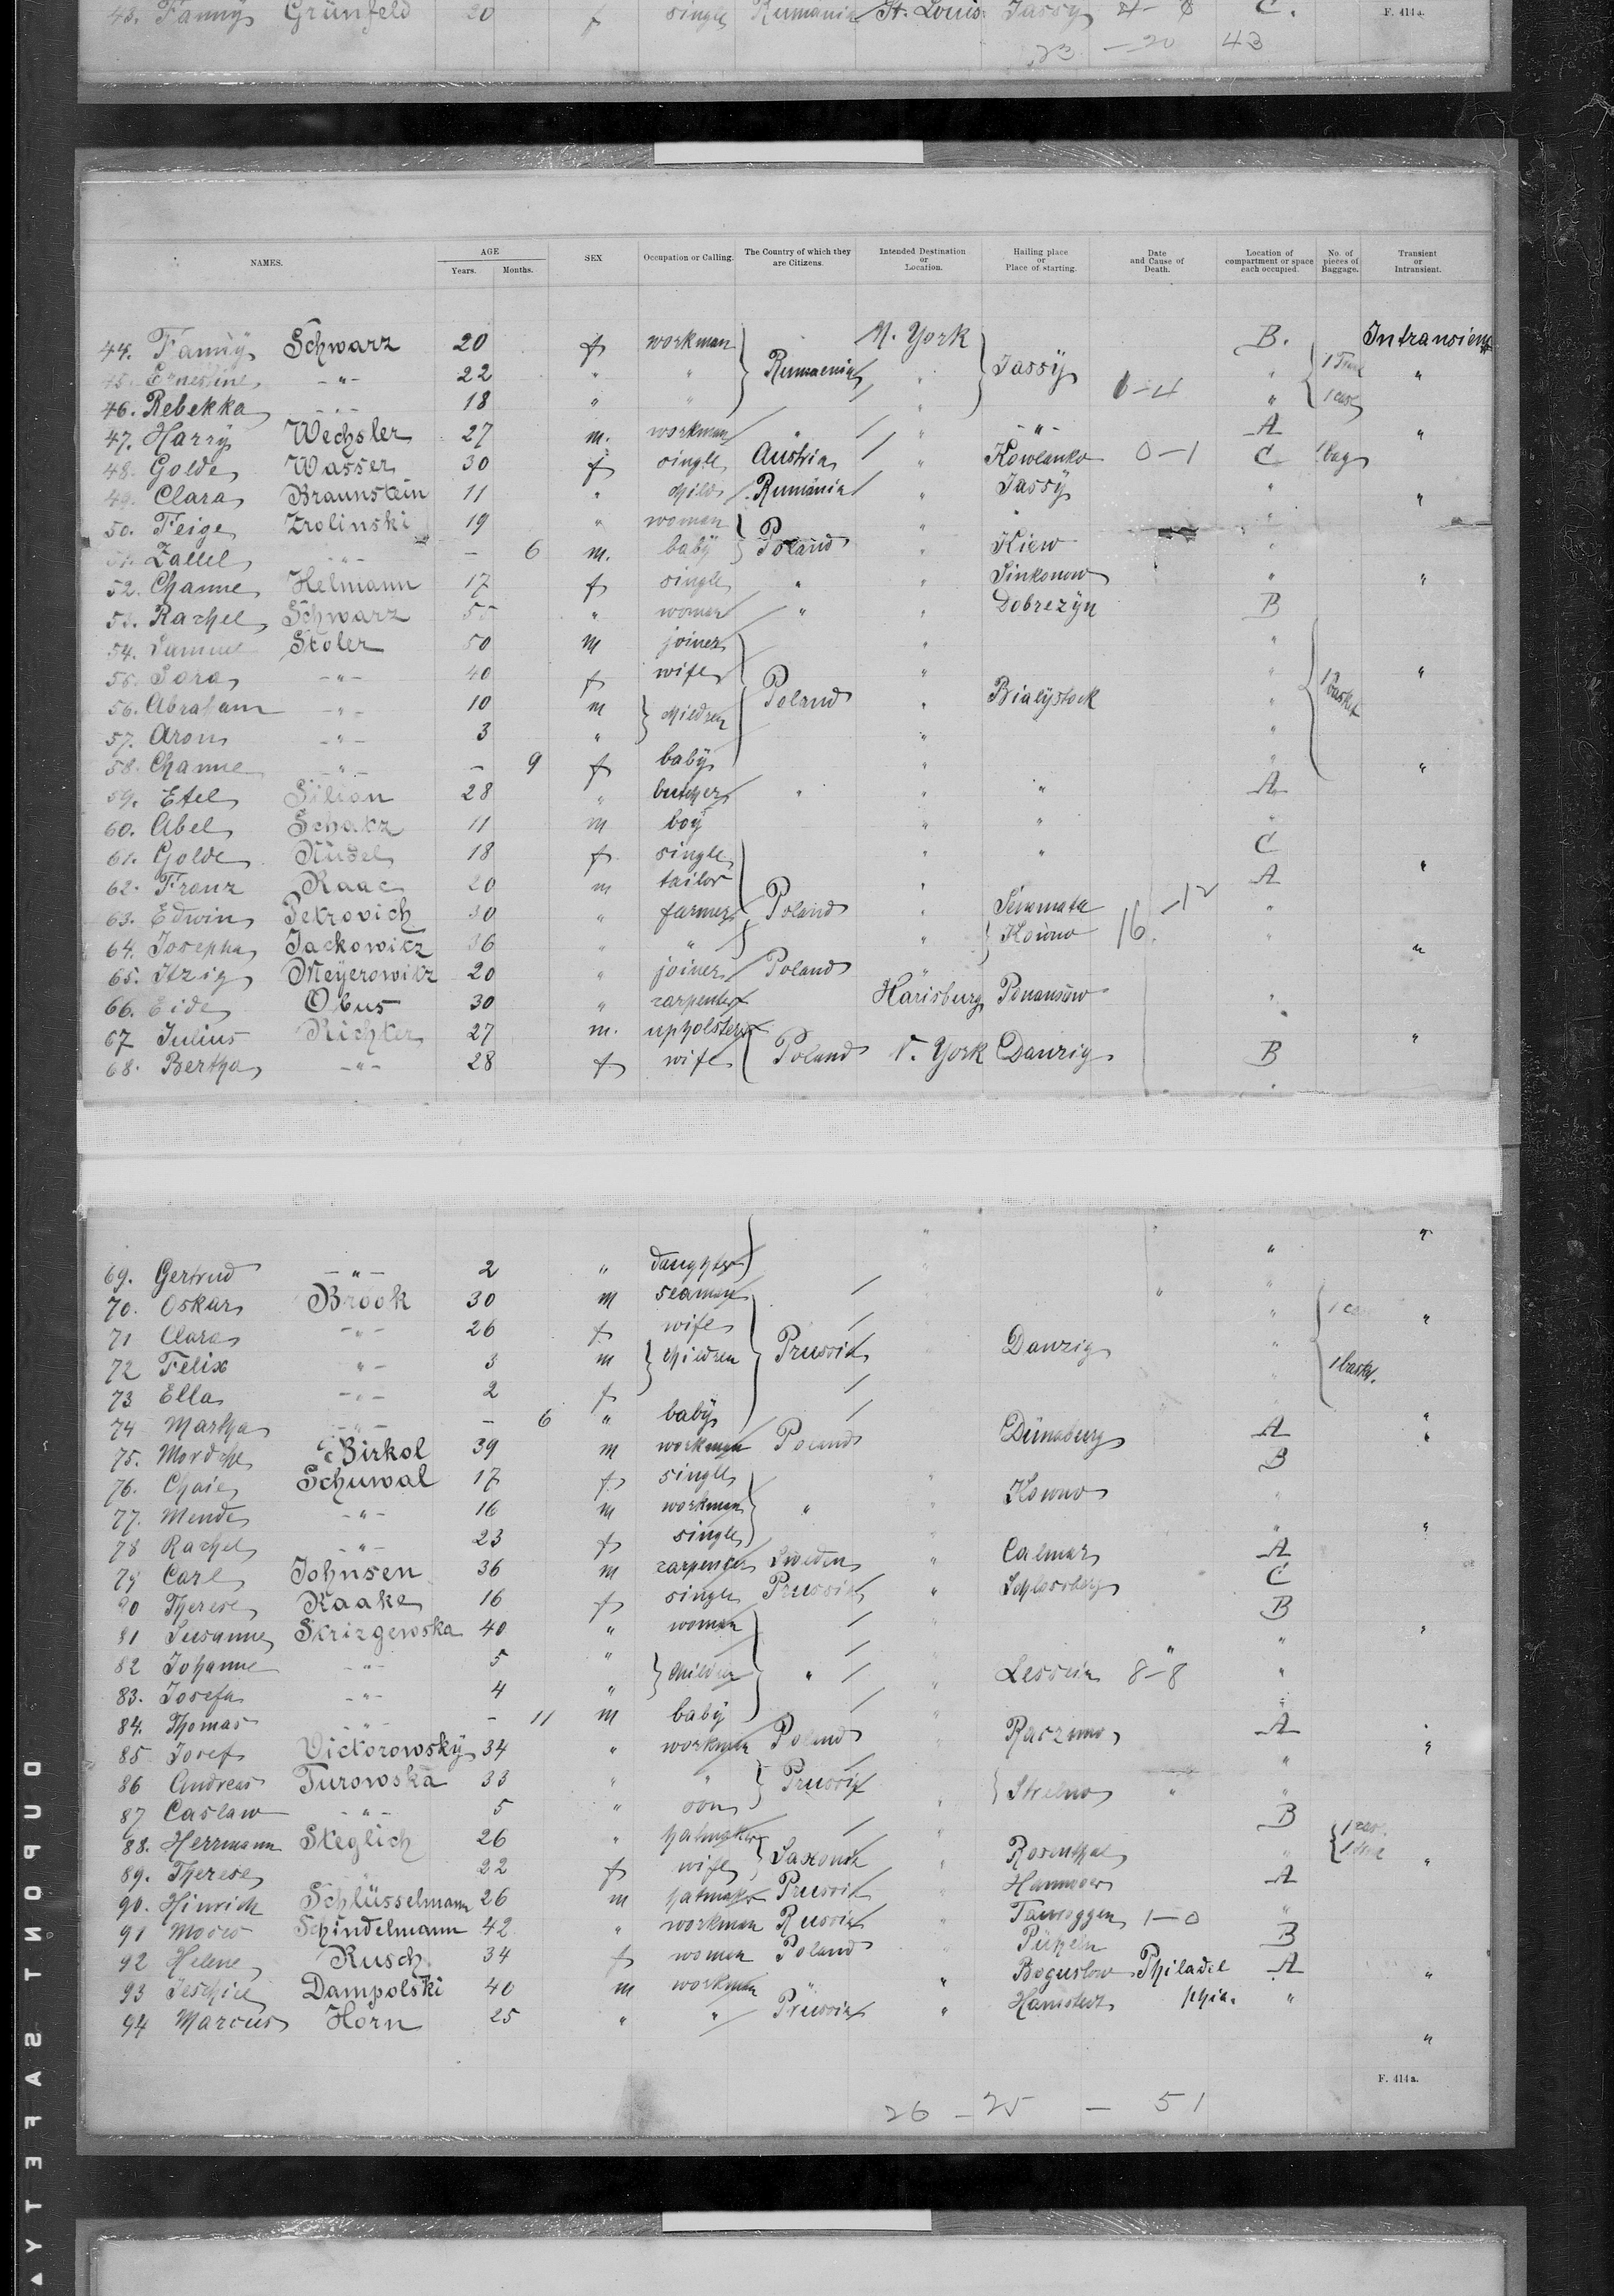 43. Fanny Grünfeld 20 f single Rumania St. Louis Jassy 4 - C.
F. 414a.
23 - 20 43
NAMES. AGE Years. Months. SEX Occupation or Calling. The Country of which they are Citizens. Intended Destination or Location. Hailing place or Place of starting. Date and Cause of Death. Location of compartment or space each occupied. No. of pieces of Baggage. Transient or Intransient.
44. Fanny Schwarz 20 f workman N. York B. Intransient
45. Ernestine -"- 22 " " Rumaenia " Jassy " "
46. Rebekka -"- 18 " " " 0-4 " 1 case
47. Harry Wechsler 27 m. workman " " -"- A "
48. Golde Wasser 30 f single Austria " Kowlenko 0-1 C 1 bag
49. Clara Braunstein 11 " child Rumänia " Jassy " "
50. Feige Zrolinski 19 " woman " "
51. Zallel -"- - 6 m. baby Poland " Kiew "
52. Channe Helmann 17 f single " " Sinkonow " "
53. Rachel Schwarz 55 " woman " " Dobrezyn B
54. Samuel Stoler 50 m joiner " "
55. Sora -"- 40 f wife " " "
56. Abraham -"- 10 m children Poland " Bialystock " 1 basket
57. Aron -"- 3 " " "
58. Channe -"- - 9 f baby " " "
59. Etel Silian 28 " butcher " " " A
60. Abel Schatz 11 m boy " " "
61. Golde Rudel 18 f single " " C
62. Franz Raac 20 m tailor " A "
63. Edwin Petrovich 30 " farmer Poland " -12 "
64. Josepha Jackowitz 36 " " " Kowno 16 " "
65. Itzig Meyerowitz 20 " joiner Poland "
66. Eide Obus 30 " carpenter Harisburg Ponansow "
67 Julius Richter 27 m. upholsterer "
68. Bertha -"- 28 f wife Poland N. York Danzig B
69. Gertrud -"- 2 " daughter " " "
70. Oskar Brook 30 m seaman " "
71 Clara -"- 26 f wife " 1 case "
72 Felix "- 3 m children Prussia Danzig "
73 Ella -"- 2 f 1 bask.
74 Martha -"- - 6 " baby "
75. Mordche Birkol 39 m workman Poland Dünaburg A "
76. Chaie Schuwal 17 f single B
77. Mende -"- 16 m workman " " Kowno "
78 Rachel -"- 23 f single " "
79 Carl Johnsen 36 m carpenter Sweden " Calmar A
80 Therese Raake 16 f single Prussia " Schlossberg C
81 Susanne Skrizgewska 40 " woman B "
82 Johanne -"- 5 " children " "
83. Josefa -"- 4 " " " Lessein 8-8 "
84. Thomas -"- - 11 m baby "
85 Josef Victorowsky 34 " workman Poland Raczuno A "
86 Andreas Turowska 33 " " Prussia "
87 Caslaw -"- 5 " son " Strelno " "
88. Herrmann Steglich 26 " hatmaker B 1 case
89. Therese 22 f wife Saxonia " Rosenthal " "
90. Hinrich Schlüsselmann 26 m hatmaker Prussia Hannover A
91 Moses Schindelmann 42 " workman Russia " Tauroggen 1-0 "
92 Helene Rusch 34 f woman Poland B
93 Dampolski 40 m workman " " Boguslow Philadel A "
94 Marcus Horn 25 " " Prussia " Hamstedt phia. "
"
F. 414a.
26 - 25 - 51
SAFETY